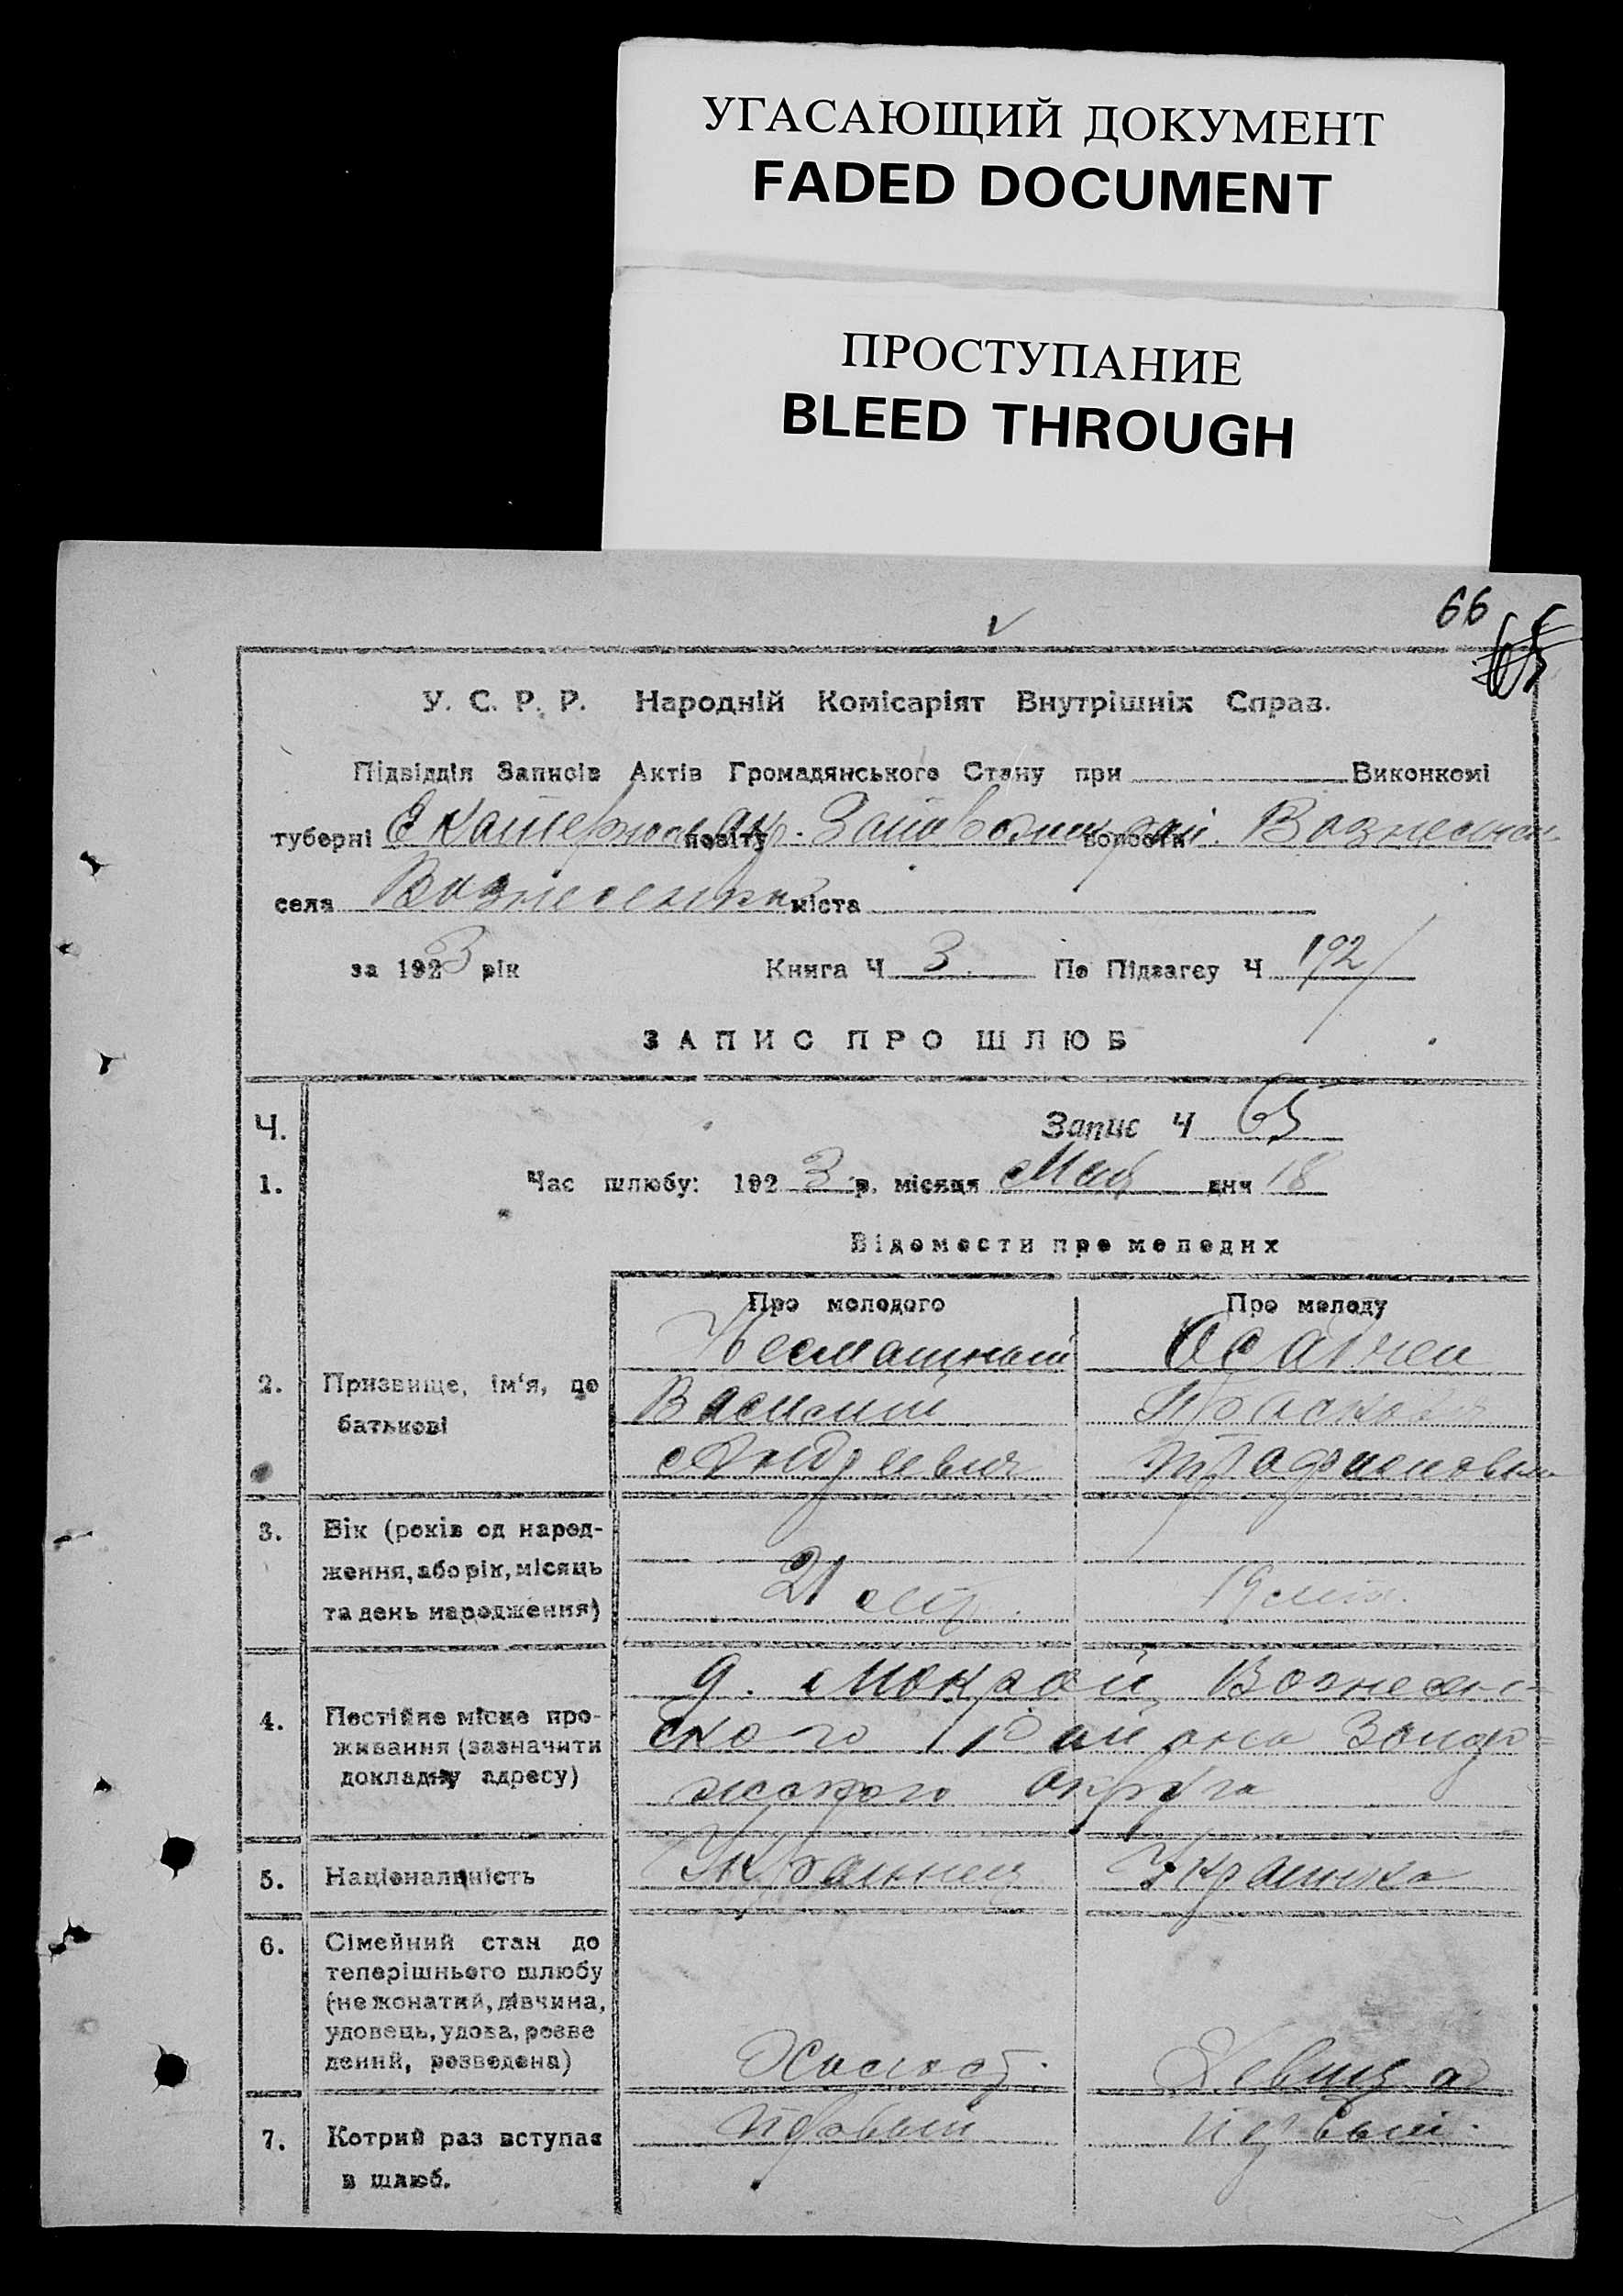 УГАСАЮЩИЙ ДОКУМЕНТ
FADED DOCUMENT
ПРОСТУПАНИЕ
BLEED THROUGH
66
65
У. С. Р. Р. Народній Комісаріят Внутрішніх Справ.
Підвідділ Записів Актів Громадянського Стану при Виконкомі
губерні Екатеринос. повіту волости
села Вознесенки міста
за 1923 рік Книга Ч 3. По Підзагсу Ч 192
ЗАПИС ПРО ШЛЮБ
Ч. Запис Ч 65
1. Час шлюбу: 1923 р. місяця Мая дня 18
Відомости про молодих
Про молодого Про молоду
2. Призвище, ім'я, по батькові
Василий
Андреевич
3. Вік (років од народ-
ження, або рік, місяць
та день народження)
21 лет. 19 лет.
4. Постійне місце про-
живання (зазначити
докладну адресу)
д. Мокрой Вознесен-
ского Района Запоро-
жского округа
5. Національність Украинец Украинка
6. Сімейний стан до
теперішнього шлюбу
(не жонатий, дівчина,
удовець, удова, розве
дений, розведена)
Холост. Девица
7. Котрий раз вступає
в шлюб.
Первый Первый.